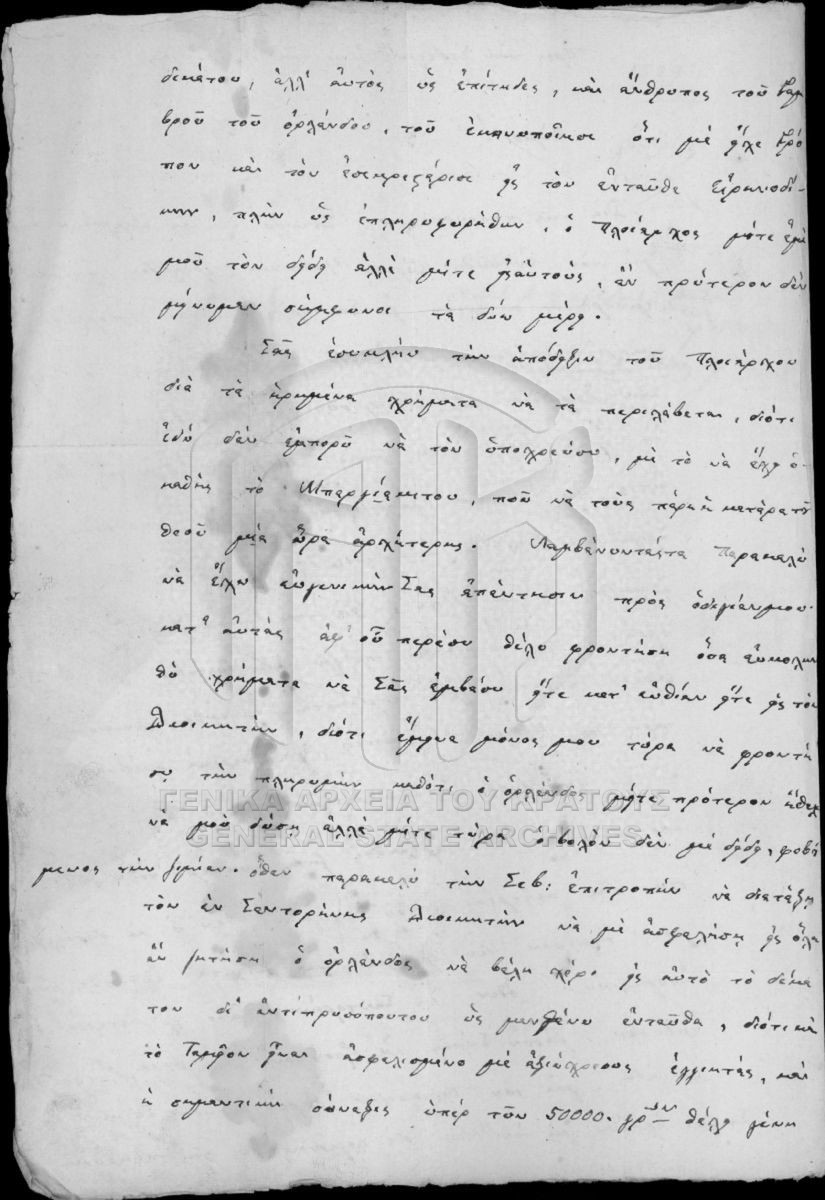 δεκάτου, ἀλλ' αὐτὸς ὡς ἐπίτηδες, καὶ ἄνθρωπος τοῦ γαμ
βροῦ τοῦ ὀρλάνδου, τοῦ ἐκοινοποίησε ὅτι μὲ εἶχε τρό
πον καὶ τὸν ἐσεκρετάρισε εἰς τὸν ἐνταῦθα Εἰρηνοδί-
κην, πλὴν ὡς ἐπληρωφορήθην, ὁ Πλοίαρχος μήτε ἐμέ
μοῦ τὸν δίδει ἀλλὰ μήτε εἰς αὐτοὺς, ἂν πρότερον δὲν
γίνωμεν σύμφωνοι τὰ δύω μέρη.
Σᾶς ἐσωκλείω τὴν ἀπόδειξιν τοῦ Πλοιάρχου
διὰ τὰ εἰρημένα χρήματα νὰ τὰ περιλάβεται, διότι
ἐδῶ δὲν ἐμπορῶ νὰ τὸν ὑποχρεώσω, μὲ τὸ νὰ ἔχῃ ὁ-
καθεὶς τὸ Μπαργιάκι του, ποῦ νὰ τοὺς πάρῃ ἡ κατάρα τοῦ
θεοῦ μία ὥρα ἀρχήτερης. Λαμβάνοντάς τα Παρακαλῶ
νὰ ἔχω εὐγενικήν Σας ἀπάντησιν πρὸς ὁδηγίαν μου.
κατ' αὐτὰς ἀφ' οὗ περάσω θέλω φροντήσῃ ὅσα εὐκολυν
θῶ χρήματα νὰ Σᾶς ἐμβάσω εἴτε κατ' εὐθεῖαν εἴτε εἰς τὸν
Διοικητὴν, διότι ἔμεινα μόνος μου τώρα νὰ φροντή
σω τὴν πληρωμὴν καθότι ὁ ὀρλάνδος μήτε πρότερον ἤθελε
νὰ μοῦ δώσῃ ἀλλὰ μήτε τώρα ὀβολὸν δὲν μὲ δίδει, φοβού
μενος τὴν ζημίαν. ὅθεν παρακαλῶ τὴν Σεβ: ἐπιτροπὴν νὰ διατάξῃ
τὸν ἐν Σαντορήνης Διοικητὴν νὰ μὲ ἀσφαλήσῃ εἰς ὅλα
ἂν ζητήσῃ ὁ ὀρλάνδος νὰ βάλῃ χέρι εἰς αὐτὸ τὸ δέκα
τον δι' ἀντιπροσόπου του ὡς μανθάνω ἐνταῦθα, διότι καὶ
τὸ Ταμεῖον εἶναι ἀσφαλισμένο μὲ ἀξιόχρεους ἐγγυητὰς, καὶ
ἡ σημαντικὴ σύναξες ὑπὲρ τῶν 50000. γρ. θέλει γένῃ
ΓΕΝΙΚΑ ΑΡΧΕΙΑ ΤΟΥ ΚΡΑΤΟΥΣ
GENERAL STATE ARCHIVES